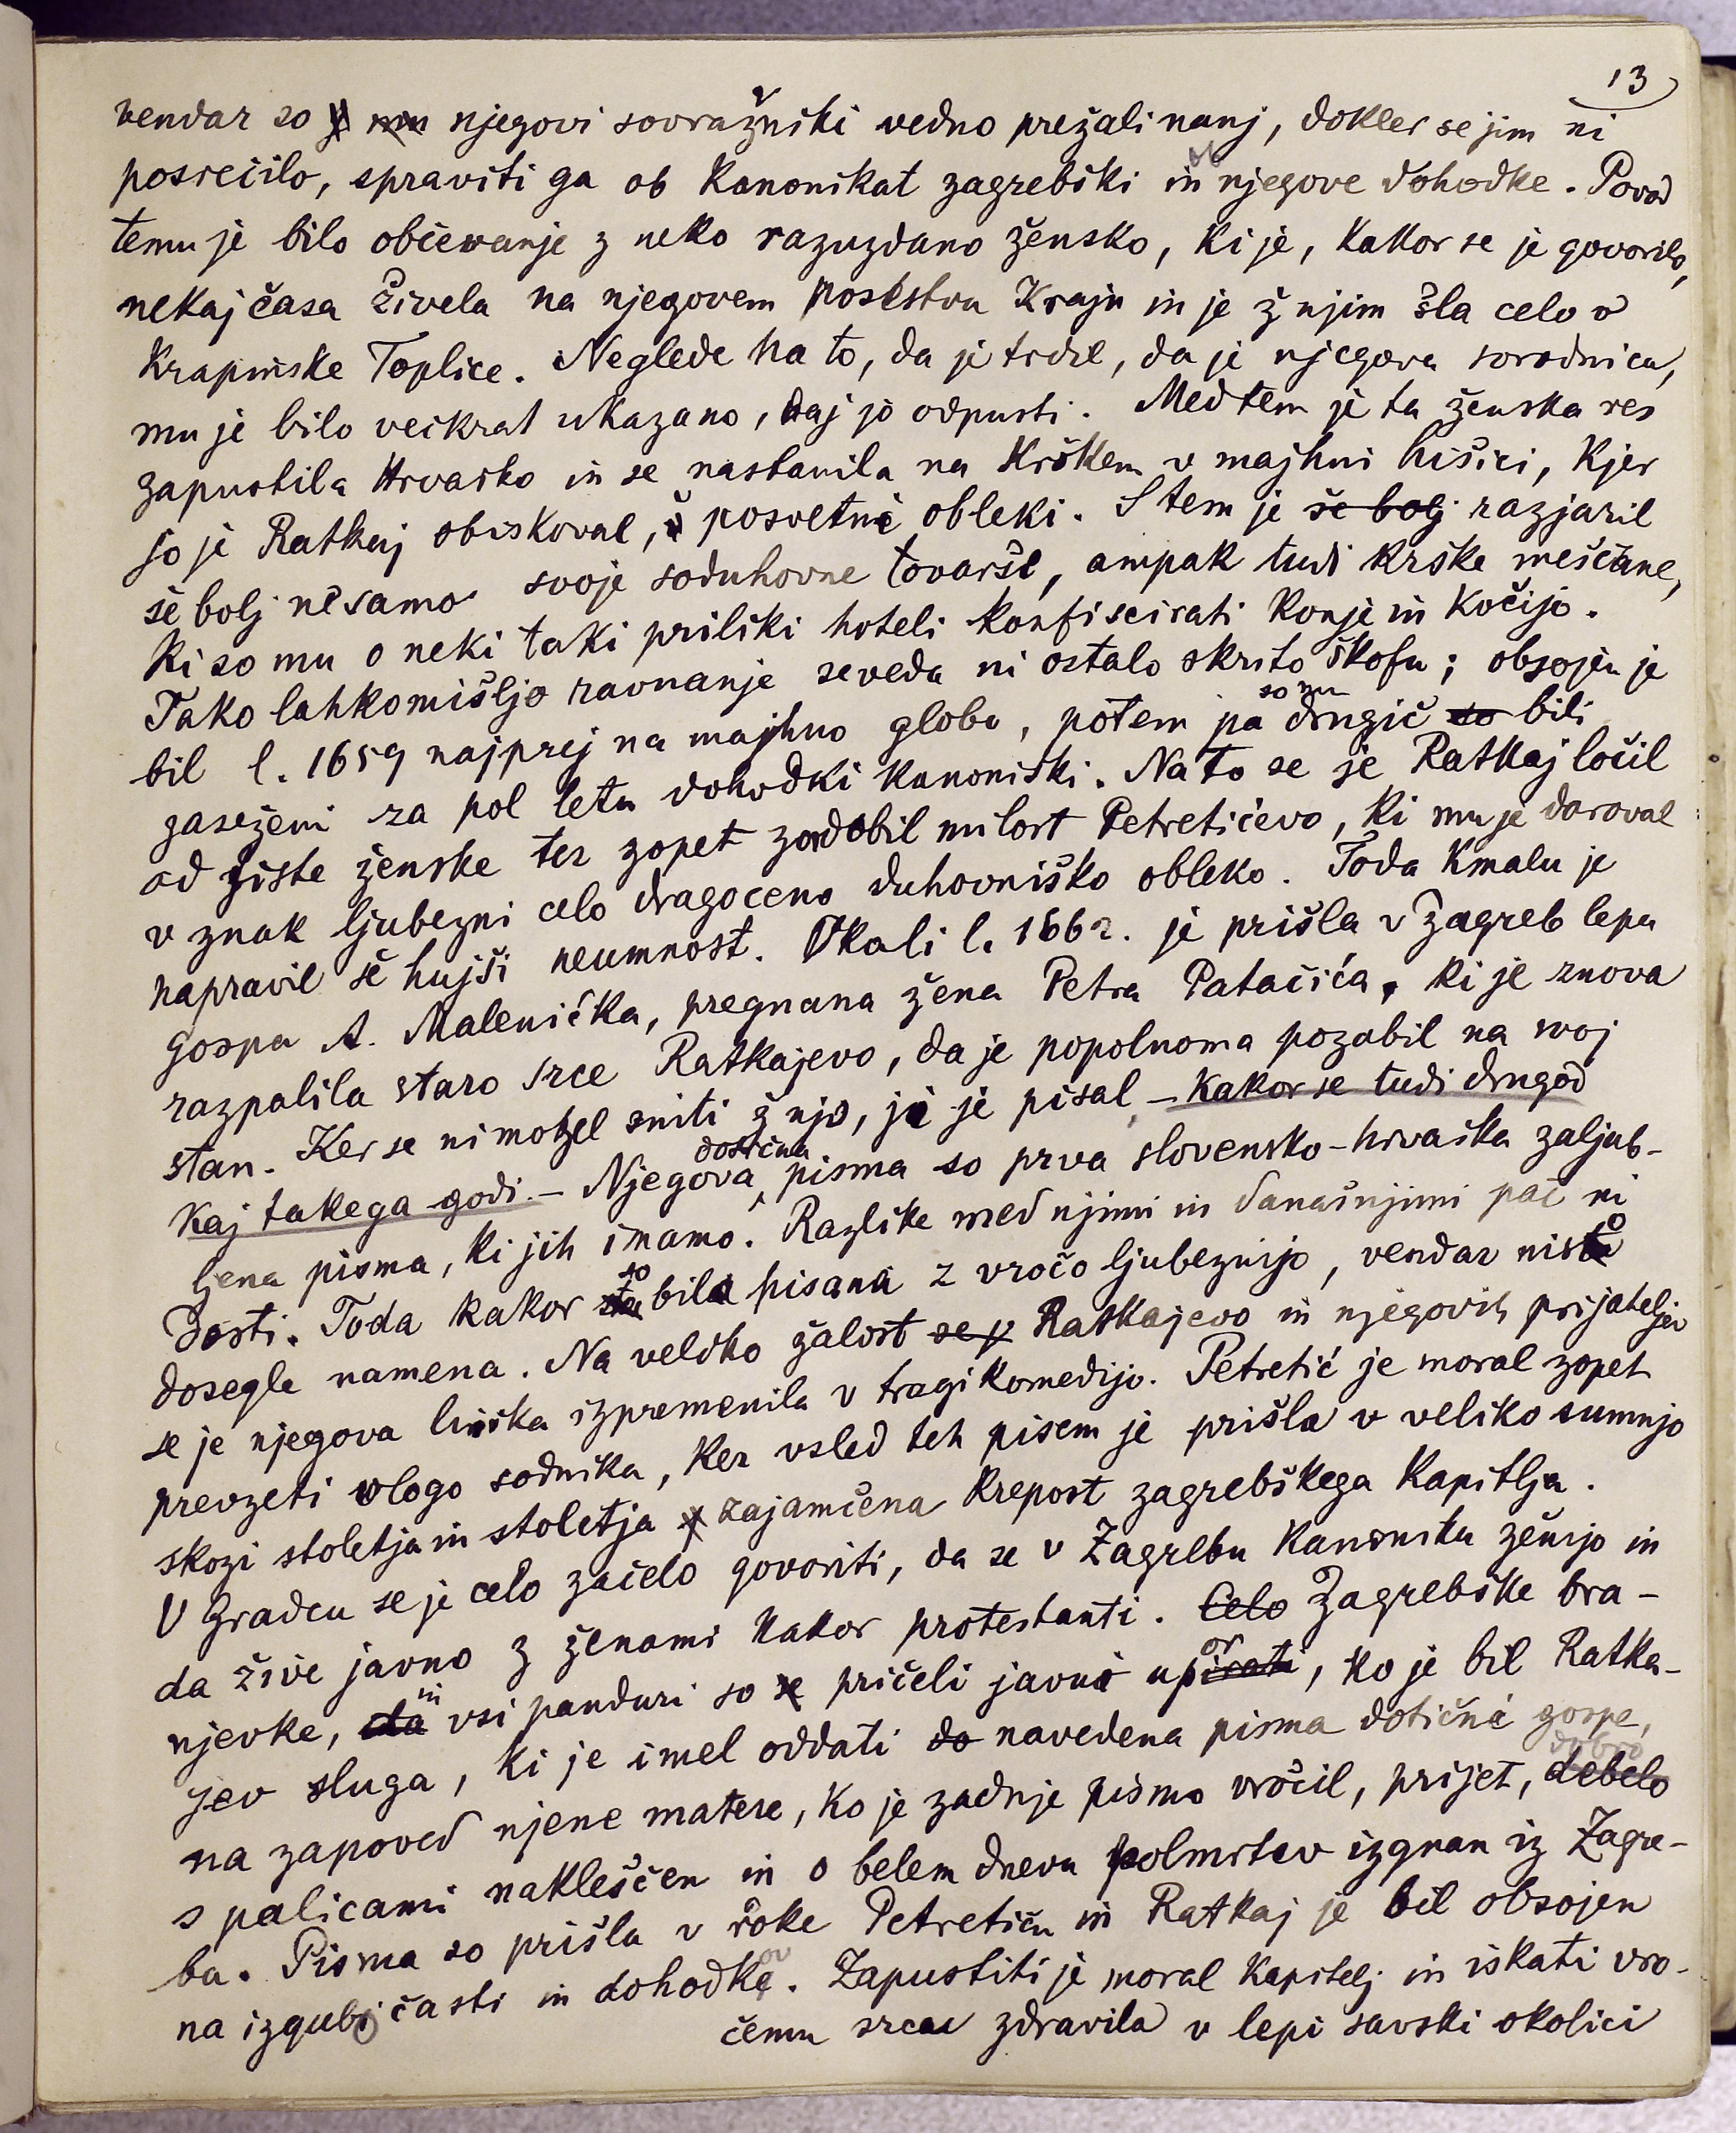 13
vendar so njegovi sovražniki vedno prežali nanj, dokler se jim ni
posrečilo, spraviti ga ob kanonikat zagrebški in ob njegove dohodke. Povod
temu je bilo občevanje z neko razuzdano žensko, ki je, kakor se je govorilo,
nekaj časa živela na njegovem posestvu Kraju in je ž njim šla celo v
Krapinske Toplice. Neglede na to, da je trdil, da je njegova sorodnica,
mu je bilo večkrat ukazano, naj jo odpusti. Medtem je ta ženska res
zapustila Hrvaško in se nastanila na Krškem v majhni hišici, kjer
jo je Ratkaj obiskoval, v posvetni obleki. S tem je še bolj razjaril
še bolj ne samo svoje soduhovne tovariše, ampak tudi krške meščane,
ki so mu o neki taki priliki hoteli konfiscirati konje in kočijo.
Tako lahkomišljo ravnanje seveda ni ostalo skrito škofu; obsojen je
bil l. 1659 najprej na majhno globo, potem pa so mu drugič so bili
zaseženi za pol leta dohodki kanoniški. Na to se je Ratkaj ločil
od tiste ženske ter zopet zadobil milost Petretićevo, ki mu je daroval
v znak ljubezni celo dragoceno duhovniško obleko. Toda kmalu je
napravil še hujši neumnost. Okoli l. 1662. je prišla v Zagreb lepa
gospa A. Malenićka, pregnana žena Petra Patačića, ki je znova
razpalila staro srce Ratkajevo, da je popolnoma pozabil na svoj
stan. Ker se ni mogel sniti ž njo, ji je pisal – kakor se tudi drugod
kaj takega godi. – Njegova dotična pisma so prva slovensko-hrvaška zaljub-
ljena pisma, ki jih imamo. Razlike med njimi in današnjimi pač ni
dosti. Toda kakor so bila pisana z vročo ljubeznijo, vendar niso
dosegla namena. Na veliko žalost Ratkajevo in njegovih prijateljev
se je njegova burka izpremenila v tragikomedijo. Petretić je moral zopet
prevzeti vlogo sodnika, ker vsled teh pisem je prišla v veliko sumnjo
skozi stoletja in stoletja zajamčena krepost zagrebškega kapitlja.
V Gradcu se je celo začelo govoriti, da se v Zagrebu kanoniki ženijo in
da žive javno z ženami kakor protestanti. Celo Zagrebške bra-
njevke, da in vsi panduri so se pričeli javno upirati, ko je bil Ratka-
jev sluga, ki je imel oddati do navedena pisma dotični gospe,
na zapoved njene matere, ko je zadnje pismo vročil, prijet, debelo dobro
s palicami naklešćen in o belem dnevu polmrtev izgnan iz Zagre-
ba. Pisma so prišla v roke Petretiću in Ratkaj je bil obsojen
na izgubi časti in dohodkov. Zapustiti je moral kapitelj in iskati vro-
čemu srcu zdravila v lepi savski okolici